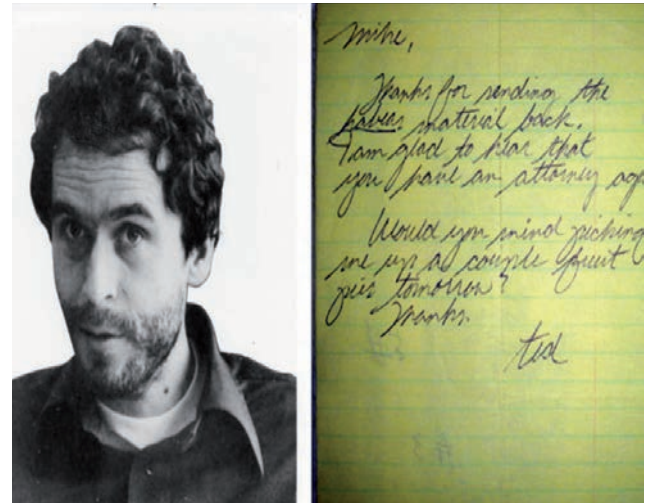 Mike,
Thanks for sending the
habeas material back.
I am glad to hear that
you have an attorney aga
Would you mind picking
me up a couple fruit
pies tomorrow?
Thanks.
ted